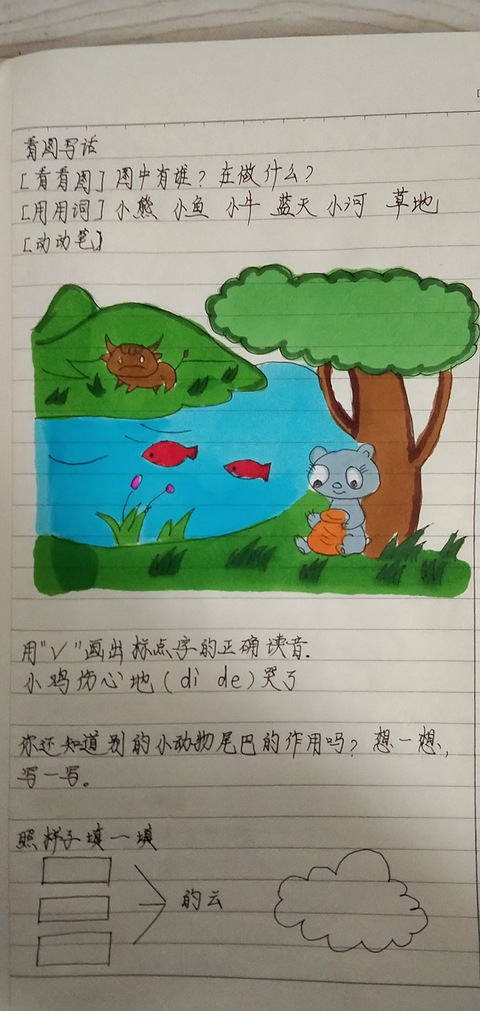 看图写话
[看看图] 图中有谁? 在做什么?
[用用词] 小熊 小鱼 小牛 蓝天 小河 草地
[动动笔]
用"√"画出标点字的正确读音.
小鸡伤心地(dì de)哭了
你还知道别的小动物尾巴的作用吗? 想一想,
写一写。
照样子填一填
的云